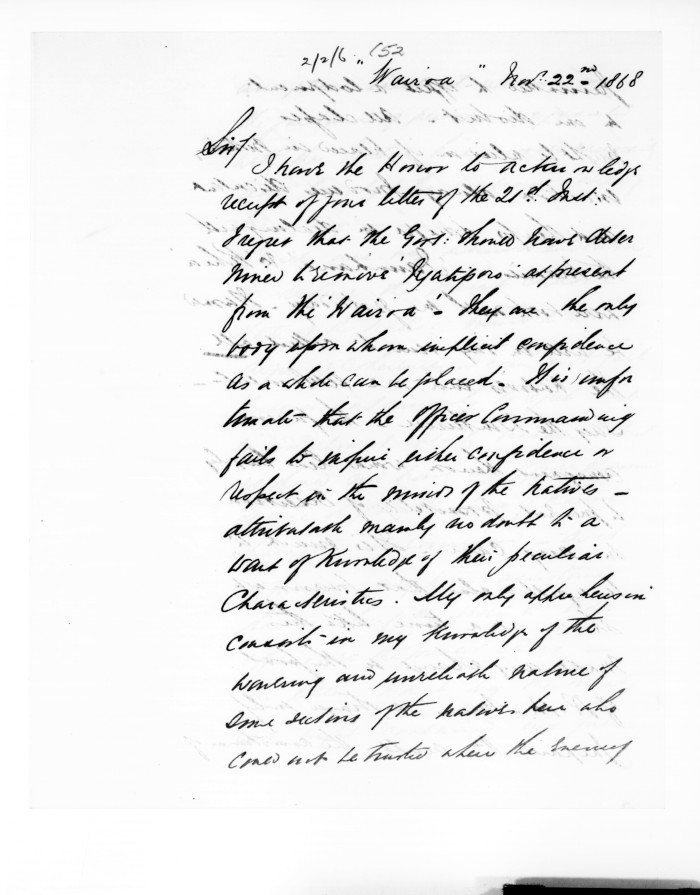 2/2/6 152
"Wairoa" Novr. 22nd 1868
Sir/
I have the Honor to acknowledge
receipt of your letter of the 21st Inst:
I regret that the Govt: should have deter
mined to remove Ngatiporo at present
from the 'Wairoa' - They are the only
body upon whom implicit confidence
as a whole can be placed - It is unfor
tunate that the Officer Commanding
fails to inspire either confidence or
respect in the minds of the Natives -
attributable mainly no doubt to a
want of knowledge of their peculiar
Characteristics. My only apprehension
consists in my knowledge of the
wavering and unreliable nature of
some sections of the natives here who
could not be trusted where the Enemy